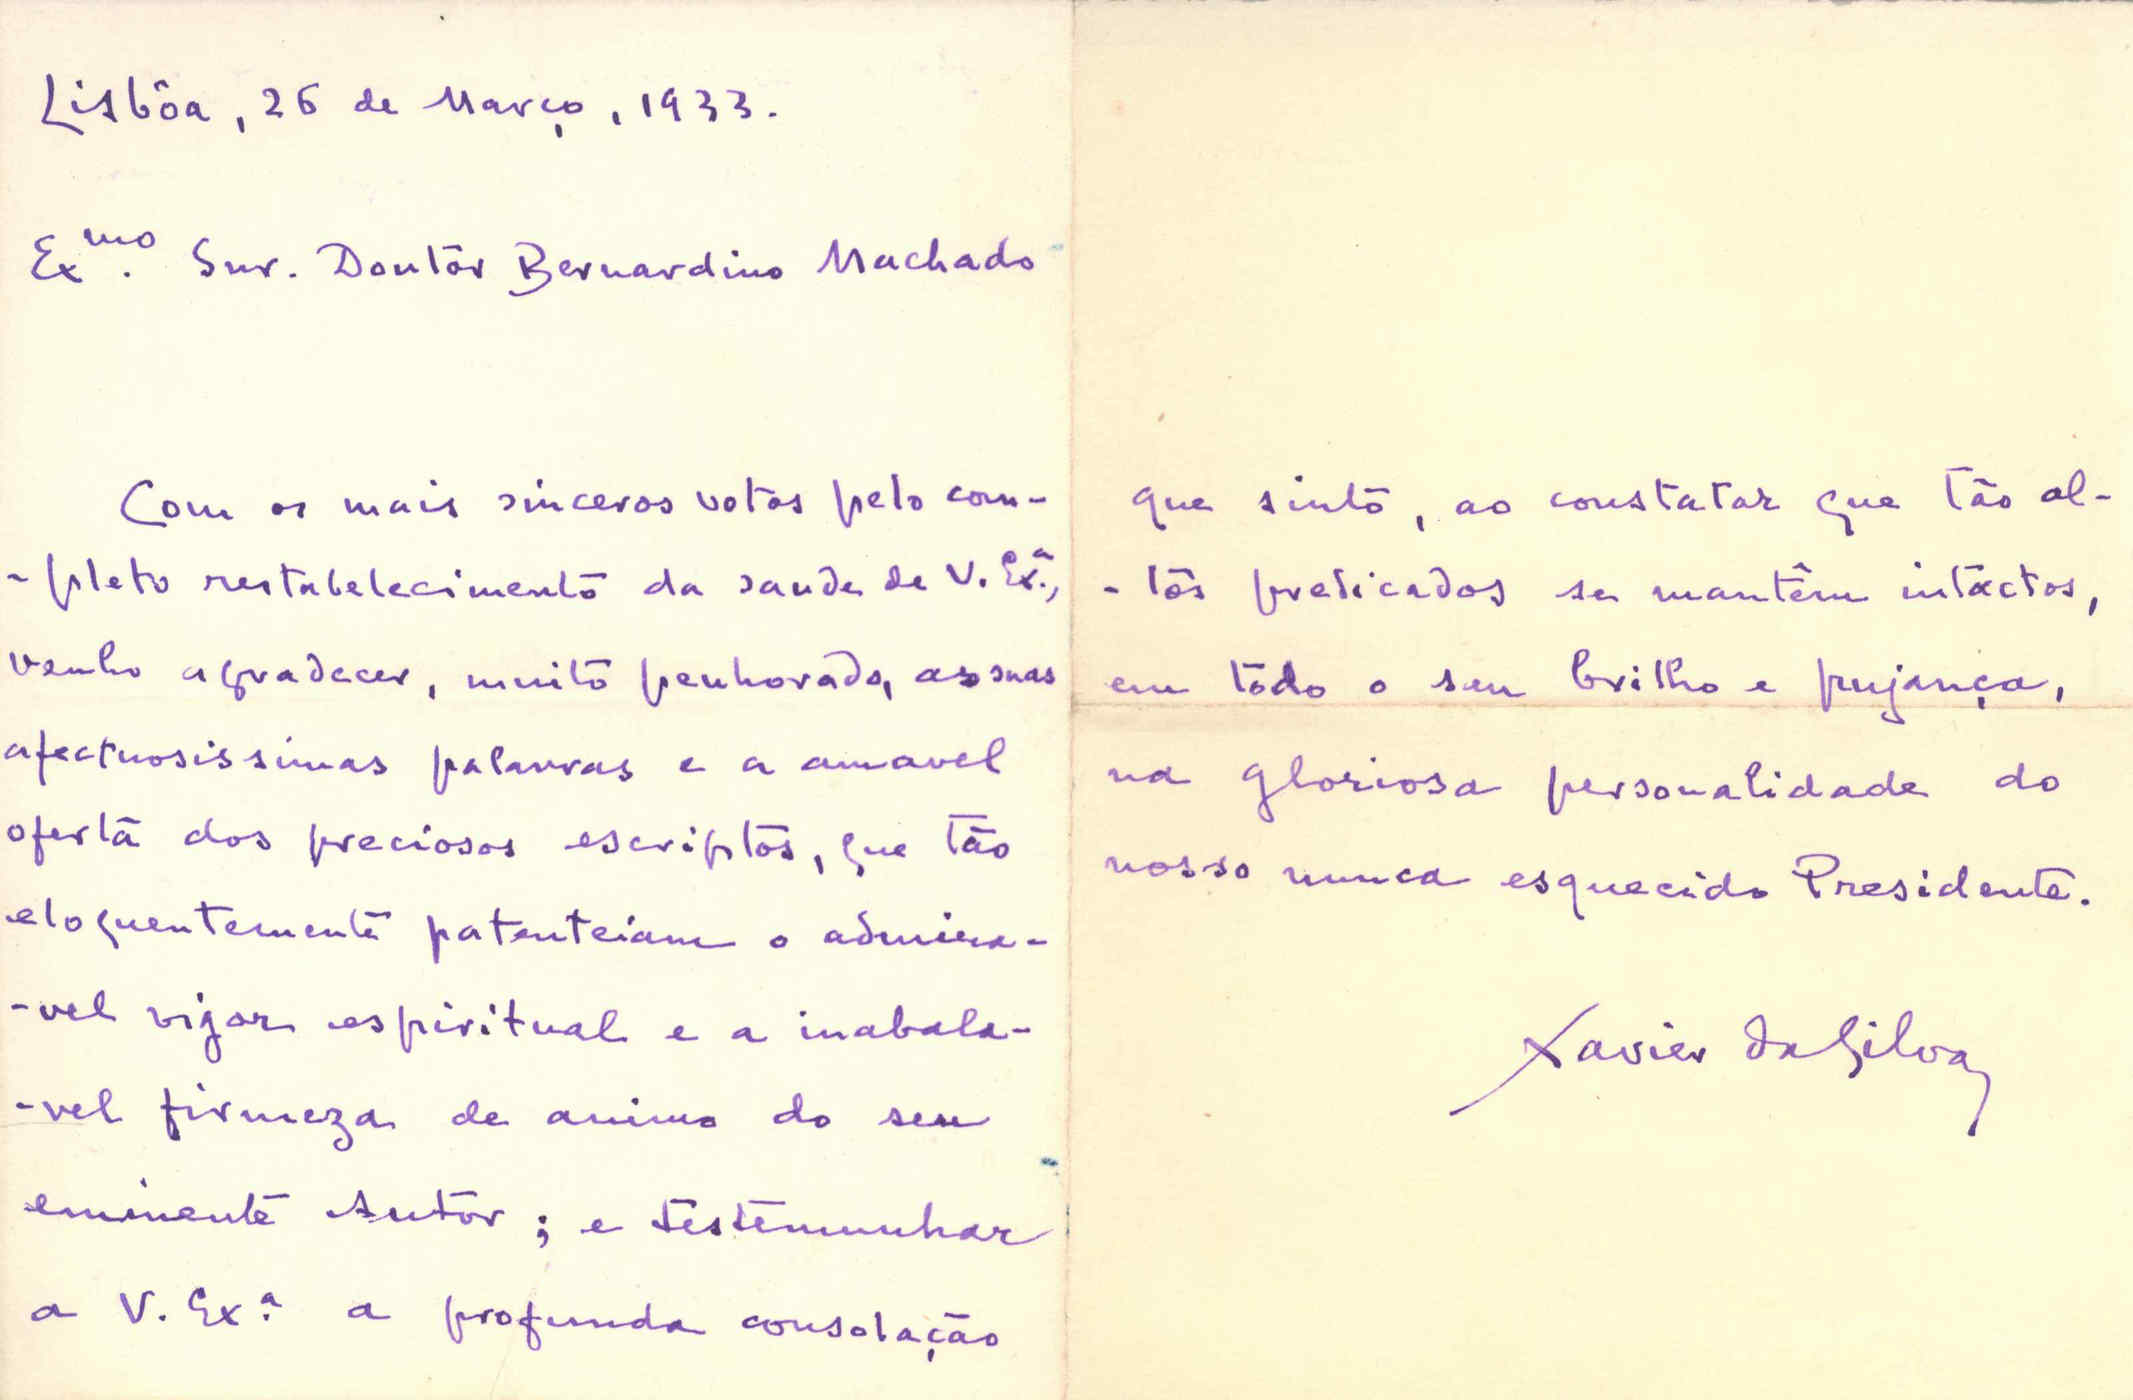 Lisbôa, 26 de Março, 1933.
Exmo. Snr. Doutor Bernardino Machado
Com os mais sinceros votos pelo com-
-pleto restabelecimento da saude de V. Exª.,
venho agradecer, muito penhorado, as suas
afectuosissimas palavras e a amavel
oferta dos preciosos escriptos, que tão
eloquentemente patenteiam o admira-
-vel vigor espiritual e a inabala-
-vel firmeza de animo do seu
eminente Autor; e testemunhar
a V. Exª. a profunda consolação
que sinto, ao constatar que tão al-
-tos predicados se mantêm intactos,
em todo o seu brilho e pujança,
na gloriosa personalidade do
nosso nunca esquecido Presidente.
Xavier da Silva